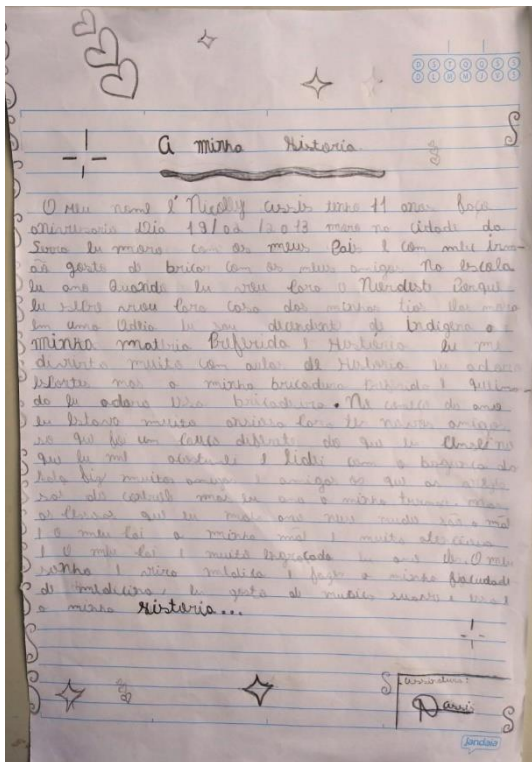 D S T Q Q S S
D L M M J V S
A minha Historia
O meu nome é Nicolly assis tenho 11 anos faço
aniversario Dia 19/02/2013 moro na cidade da
Serra Eu moro com os meus Pais e com meu irm-
ão gosto de bricar com os meus amigos Na Escola
Eu amo Quando Eu vou Para o Nordeste Porque
Eu vou Para casa dos minhas tias Elas mora
Em uma Eu sou decendente de Indigena a
minha materia Prifirida é Historia Eu me
divirto muito com aulas de Historia Eu adoro
Esportes mas a minha bricadeira é queima-
do Eu adoro Essa bricadeira. No começo do ano
Eu estava muito ansiosa Para ter novos amigos
so que foi um Pouco diferente do que Eu
que Eu me e lidei com a bagunça da
sala fiz muitos amigos e amigas so que as
do mas Eu amo a minha turma mas
as Pessoas que Eu mais amo nesse mundo são a mãe
e o meu Pai a minha mãe é muito
e o meu Pai é muito Engraçado O meu
sonho é medica e fazer a minha faculdade
de medicina, Eu gosto de musicas e Essa é
a minha Historia...
jandaia